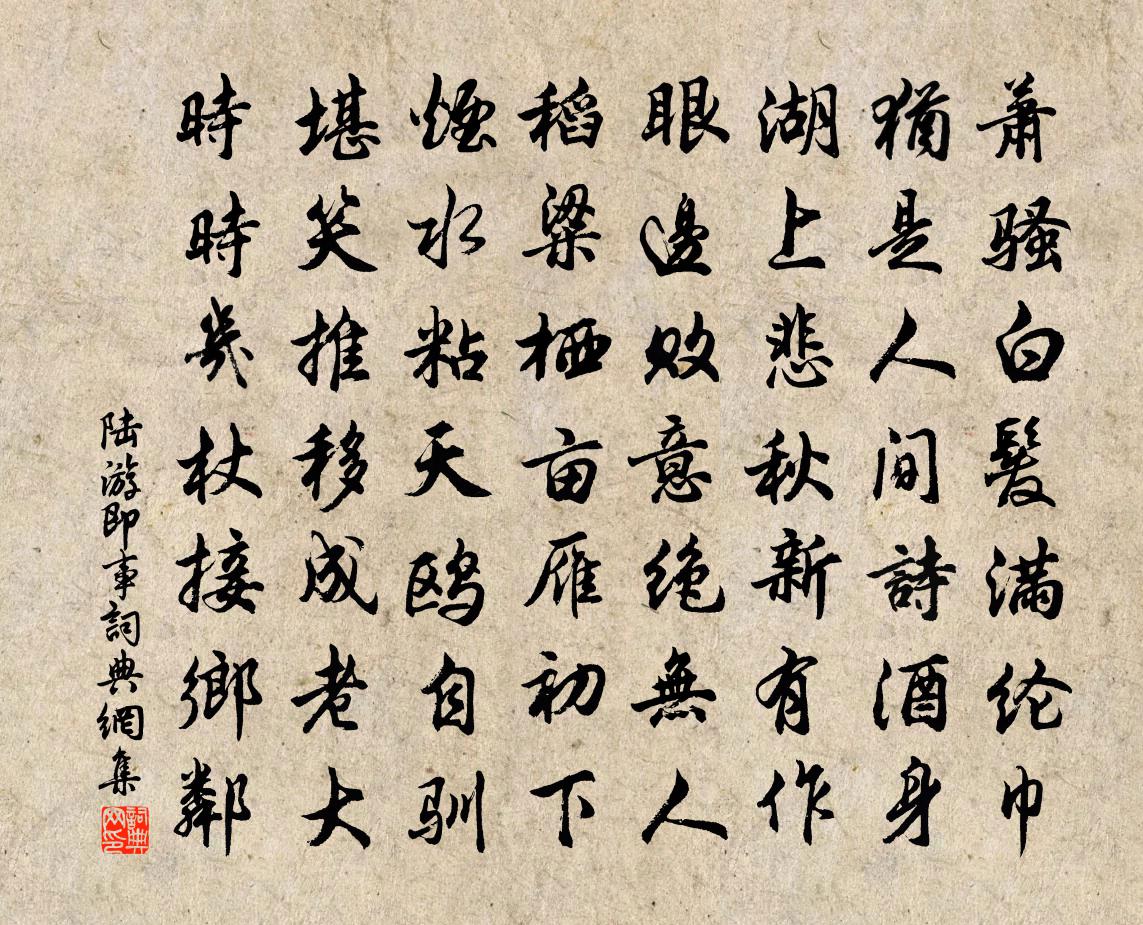 萧骚白鬓满纶巾
猶是人间詩酒身
湖上悲秋新有作
眼邊败意绝無人
稻粱栖亩雁初下
煙水粘天鸥自驯
堪笑推移成老大
時時几杖接鄉鄰
陆游即事詞典網集